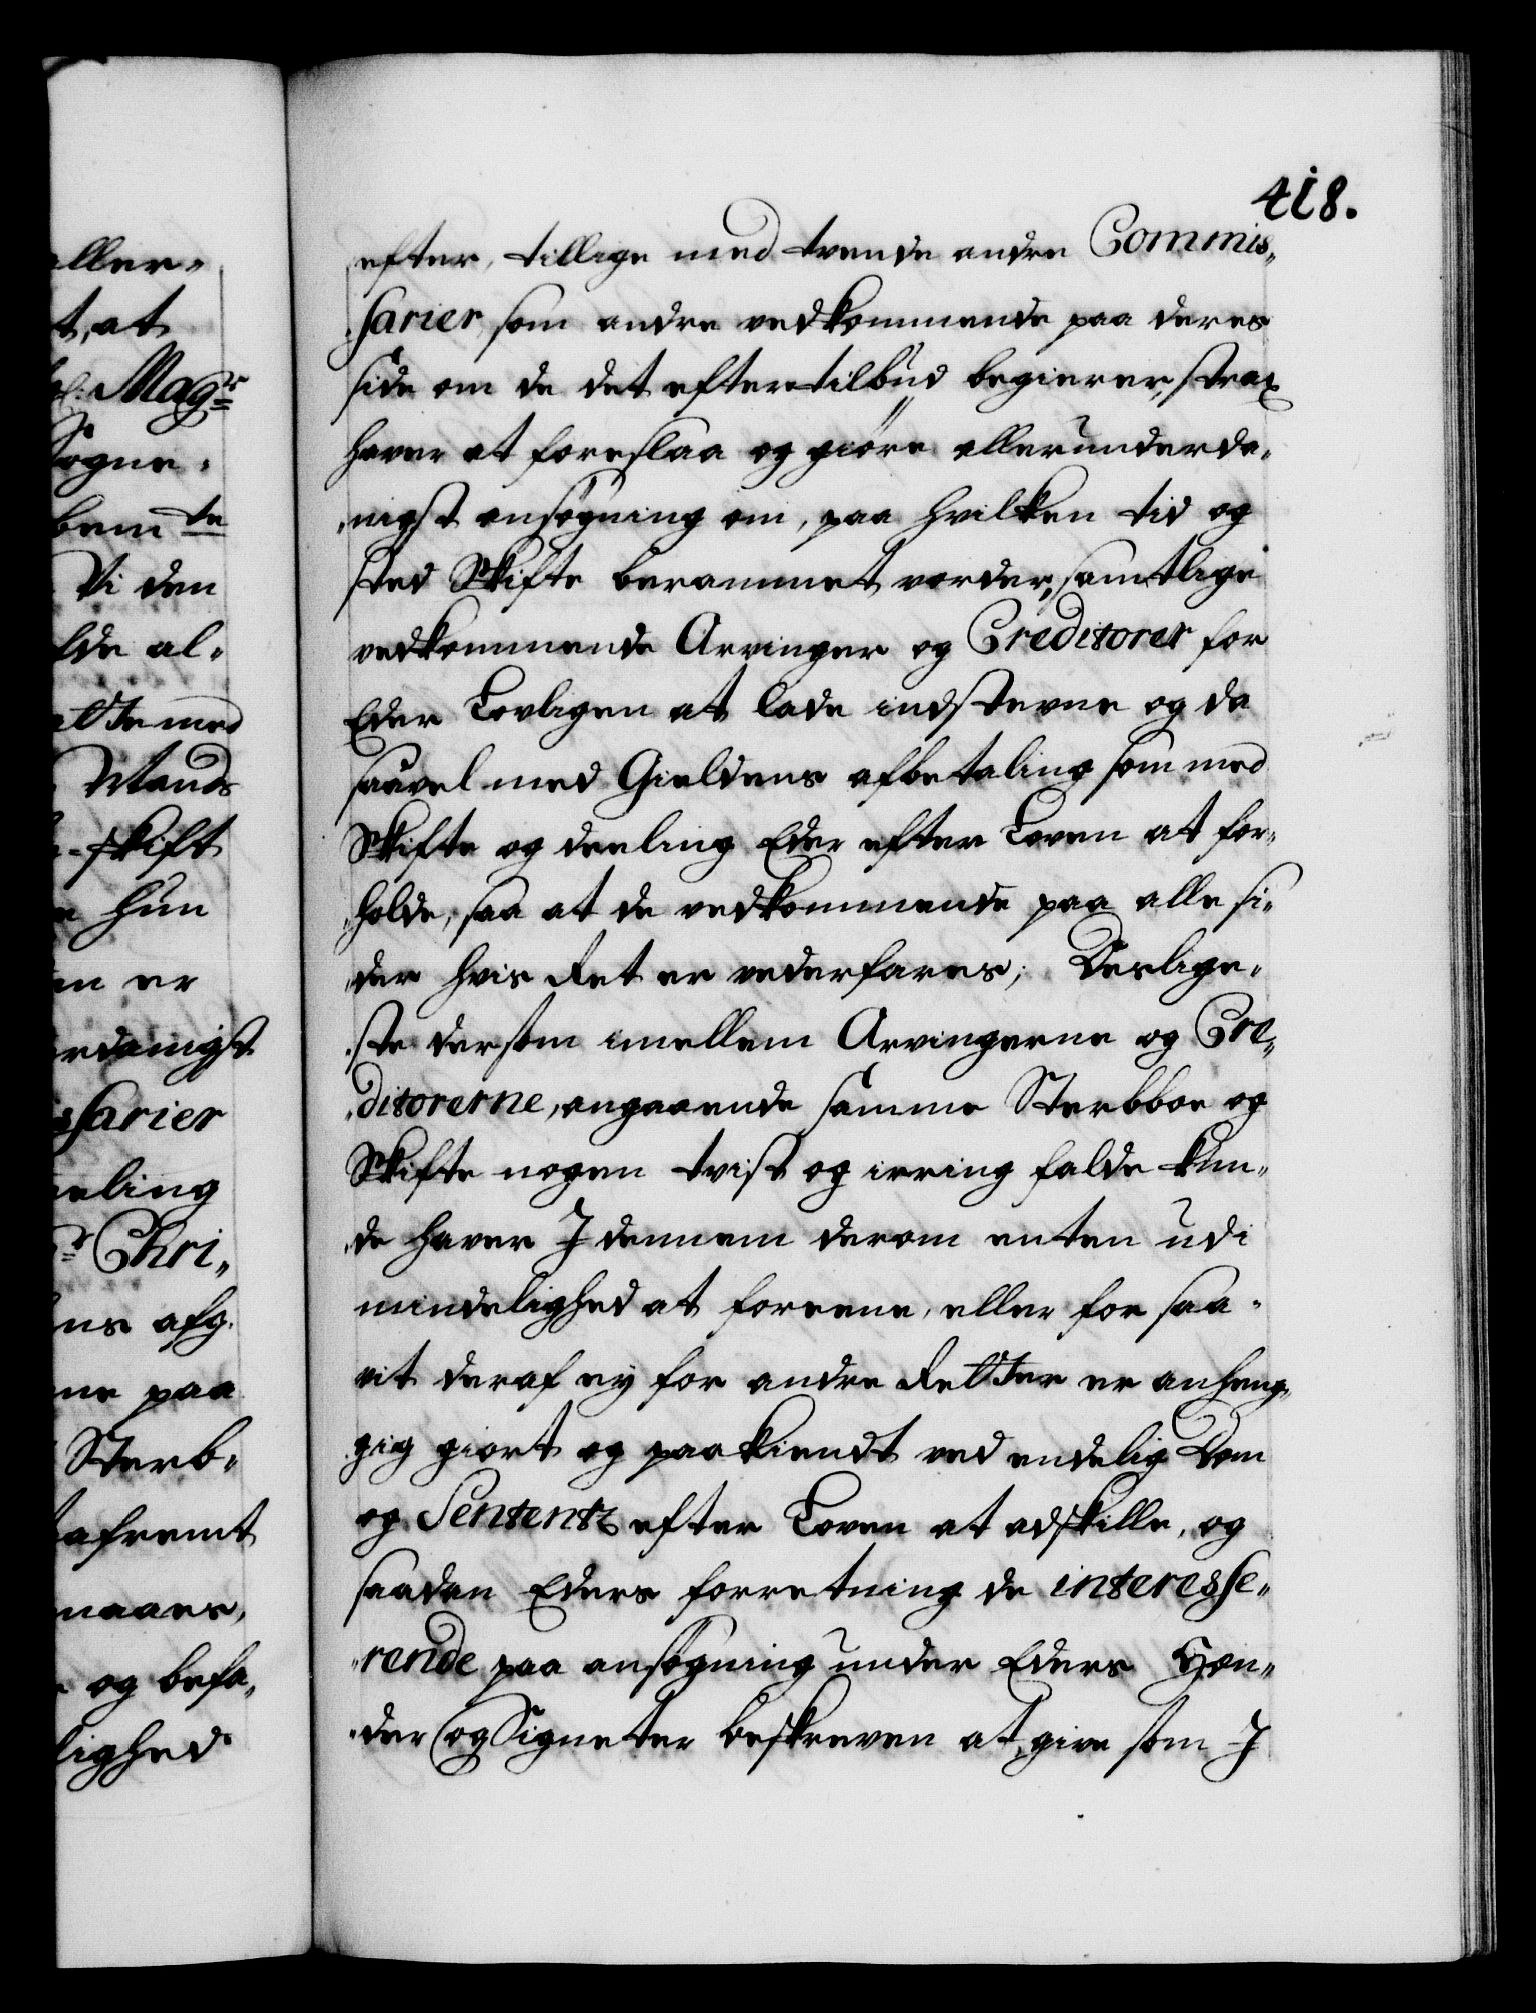 418.
efter, tillige med tvende andre Commis„
„sarier, som andre vedkommende paa deres
side om de det eftertilbud begierer, strax
haver at foreslaa og giöre allerunderda„
„nigst ansøgning om, paa hvilken tid og
sted Skifte berammet vorder, samtlige
vedkommende Arvinger og Creditorer for
Eder Lovligen at lade indstevne og da
saavel med Gieldens afbetaling som med
Skifte og deeling Eder efter Loven at for„
„holde, saa at de vedkommende paa alle si„
„der hvis Ret er vederfares; Deslige„
„ste dersom imellem Arvingerne og Cre„
„ditorerne, angaaende samme Sterbboe og
Skifte nogen tvist og irring falde kun„
„de haver I dennem derom enten udi
mindelighed at foreene, eller for saa„
vit deraf ey for andre Retter er anheng„
gig giort og paakiendt ved endelig Dom
og Sententz efter Loven at adskille, og
saadan Eders forretning de interesse„
„rende paa ansøgning under Eders Hæn„
„der og Signeter beskreven at give som I
aller„
t, at
Mag:r
Sogne„
bem:te
Vi den
lde al„
atte med
Mands
skift
hun
en er
rdanigst
sarier
eeling
Chri„
ns afg.
ne paa
Sterb„
tafremt
maaes,
og befa„
lighed